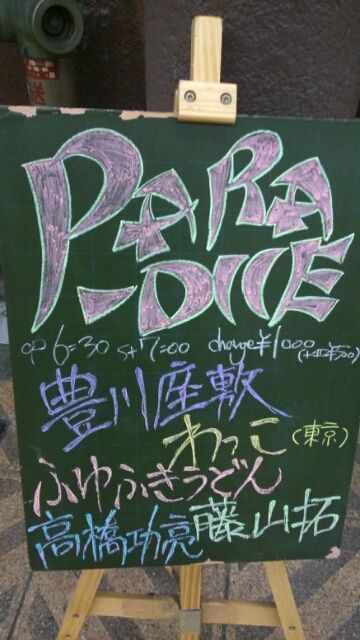 PARA
-DICE
OP 6=30 st 7=00 charge¥1000
豊川座敷
わっこ(東京)
ふゆふきうどん
高橋功亮 藤山拓